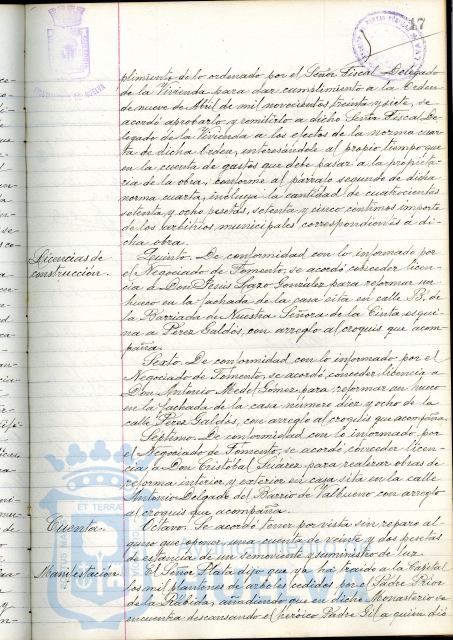 17
plimiento de lo ordenado por el Señor Fiscal Delegado
de la Vivienda para dar cumplimiento a la Orden
de nueve de Abril de mil novecientos treinta y siete, se
acordó aprobarlo y remitirlo a dicho Señor Fiscal De-
legado de la Vivienda a los efectos de la norma cuar-
ta de dicha Orden, interesándole al propio tiempo que
en la cuenta de gastos que debe pasar a la propieta-
ria de la obra, conforme al párrafo segundo de dicha
norma cuarta, incluya la cantidad de cuatrocientas
setenta y ocho pesetas, setenta y cinco céntimos importe
de los arbitrios municipales correspondientes a di-
cha obra.
Licencias de
construcción.
Quinto. De conformidad con lo informado por
el Negociado de Fomento, se acordó conceder licen-
cia a Don Jesús Lazo González para reformar un
hueco en la fachada de la casa sita en calle B. de
la Barriada de Nuestra Señora de la Cinta esqui-
na a Pérez Galdós, con arreglo al croquis que acom-
paña.
Sexto. De conformidad con lo informado por el
Negociado de Fomento, se acordó conceder licencia a
Don Antonio Medel Gómez para reformar un hueco
en la fachada de la casa número diez y ocho de la
calle Pérez Galdós, con arreglo al croquis que acompaña.
Séptimo. De conformidad con lo informado por
el Negociado de Fomento, se acordó conceder licen-
cia a Don Cristóbal Suárez para realizar obras de
reforma interior y exterior en casa sita en la calle
Antonio Delgado del Barrio de Valbueno con arreglo
al croquis que acompaña.
Cuenta.
Octavo. Se acordó tener por vista sin reparo al-
guno que oponer una cuenta de veinte y dos pesetas
de estancia de un semoviente y suministro de luz.
Manifestación
El Señor Plata dijo que ya ha traido a la Capital
los mil plantones de árboles cedidos por el Padre Prior
de la Rábida, añadiendo que en dicho Monasterio se
encuentra descansando el heróico Padre Gil a quien dió
ET TERRA